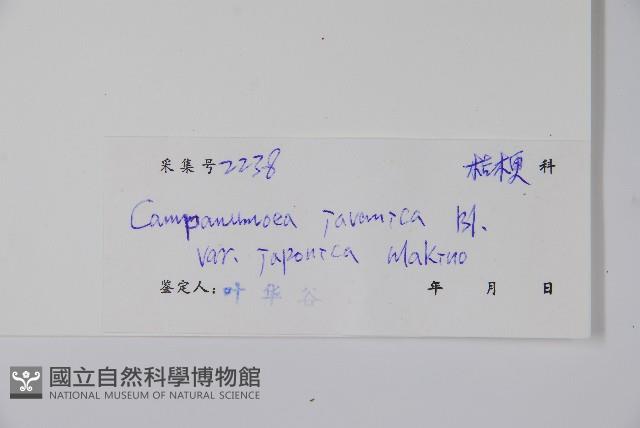 采集号 2238 桔梗 科
Campanumoea javanica Bl.
var. japonica Makino
鉴定人：叶华谷 年 月 日
國立自然科學博物館
NATIONAL MUSEUM OF NATURAL SCIENCE